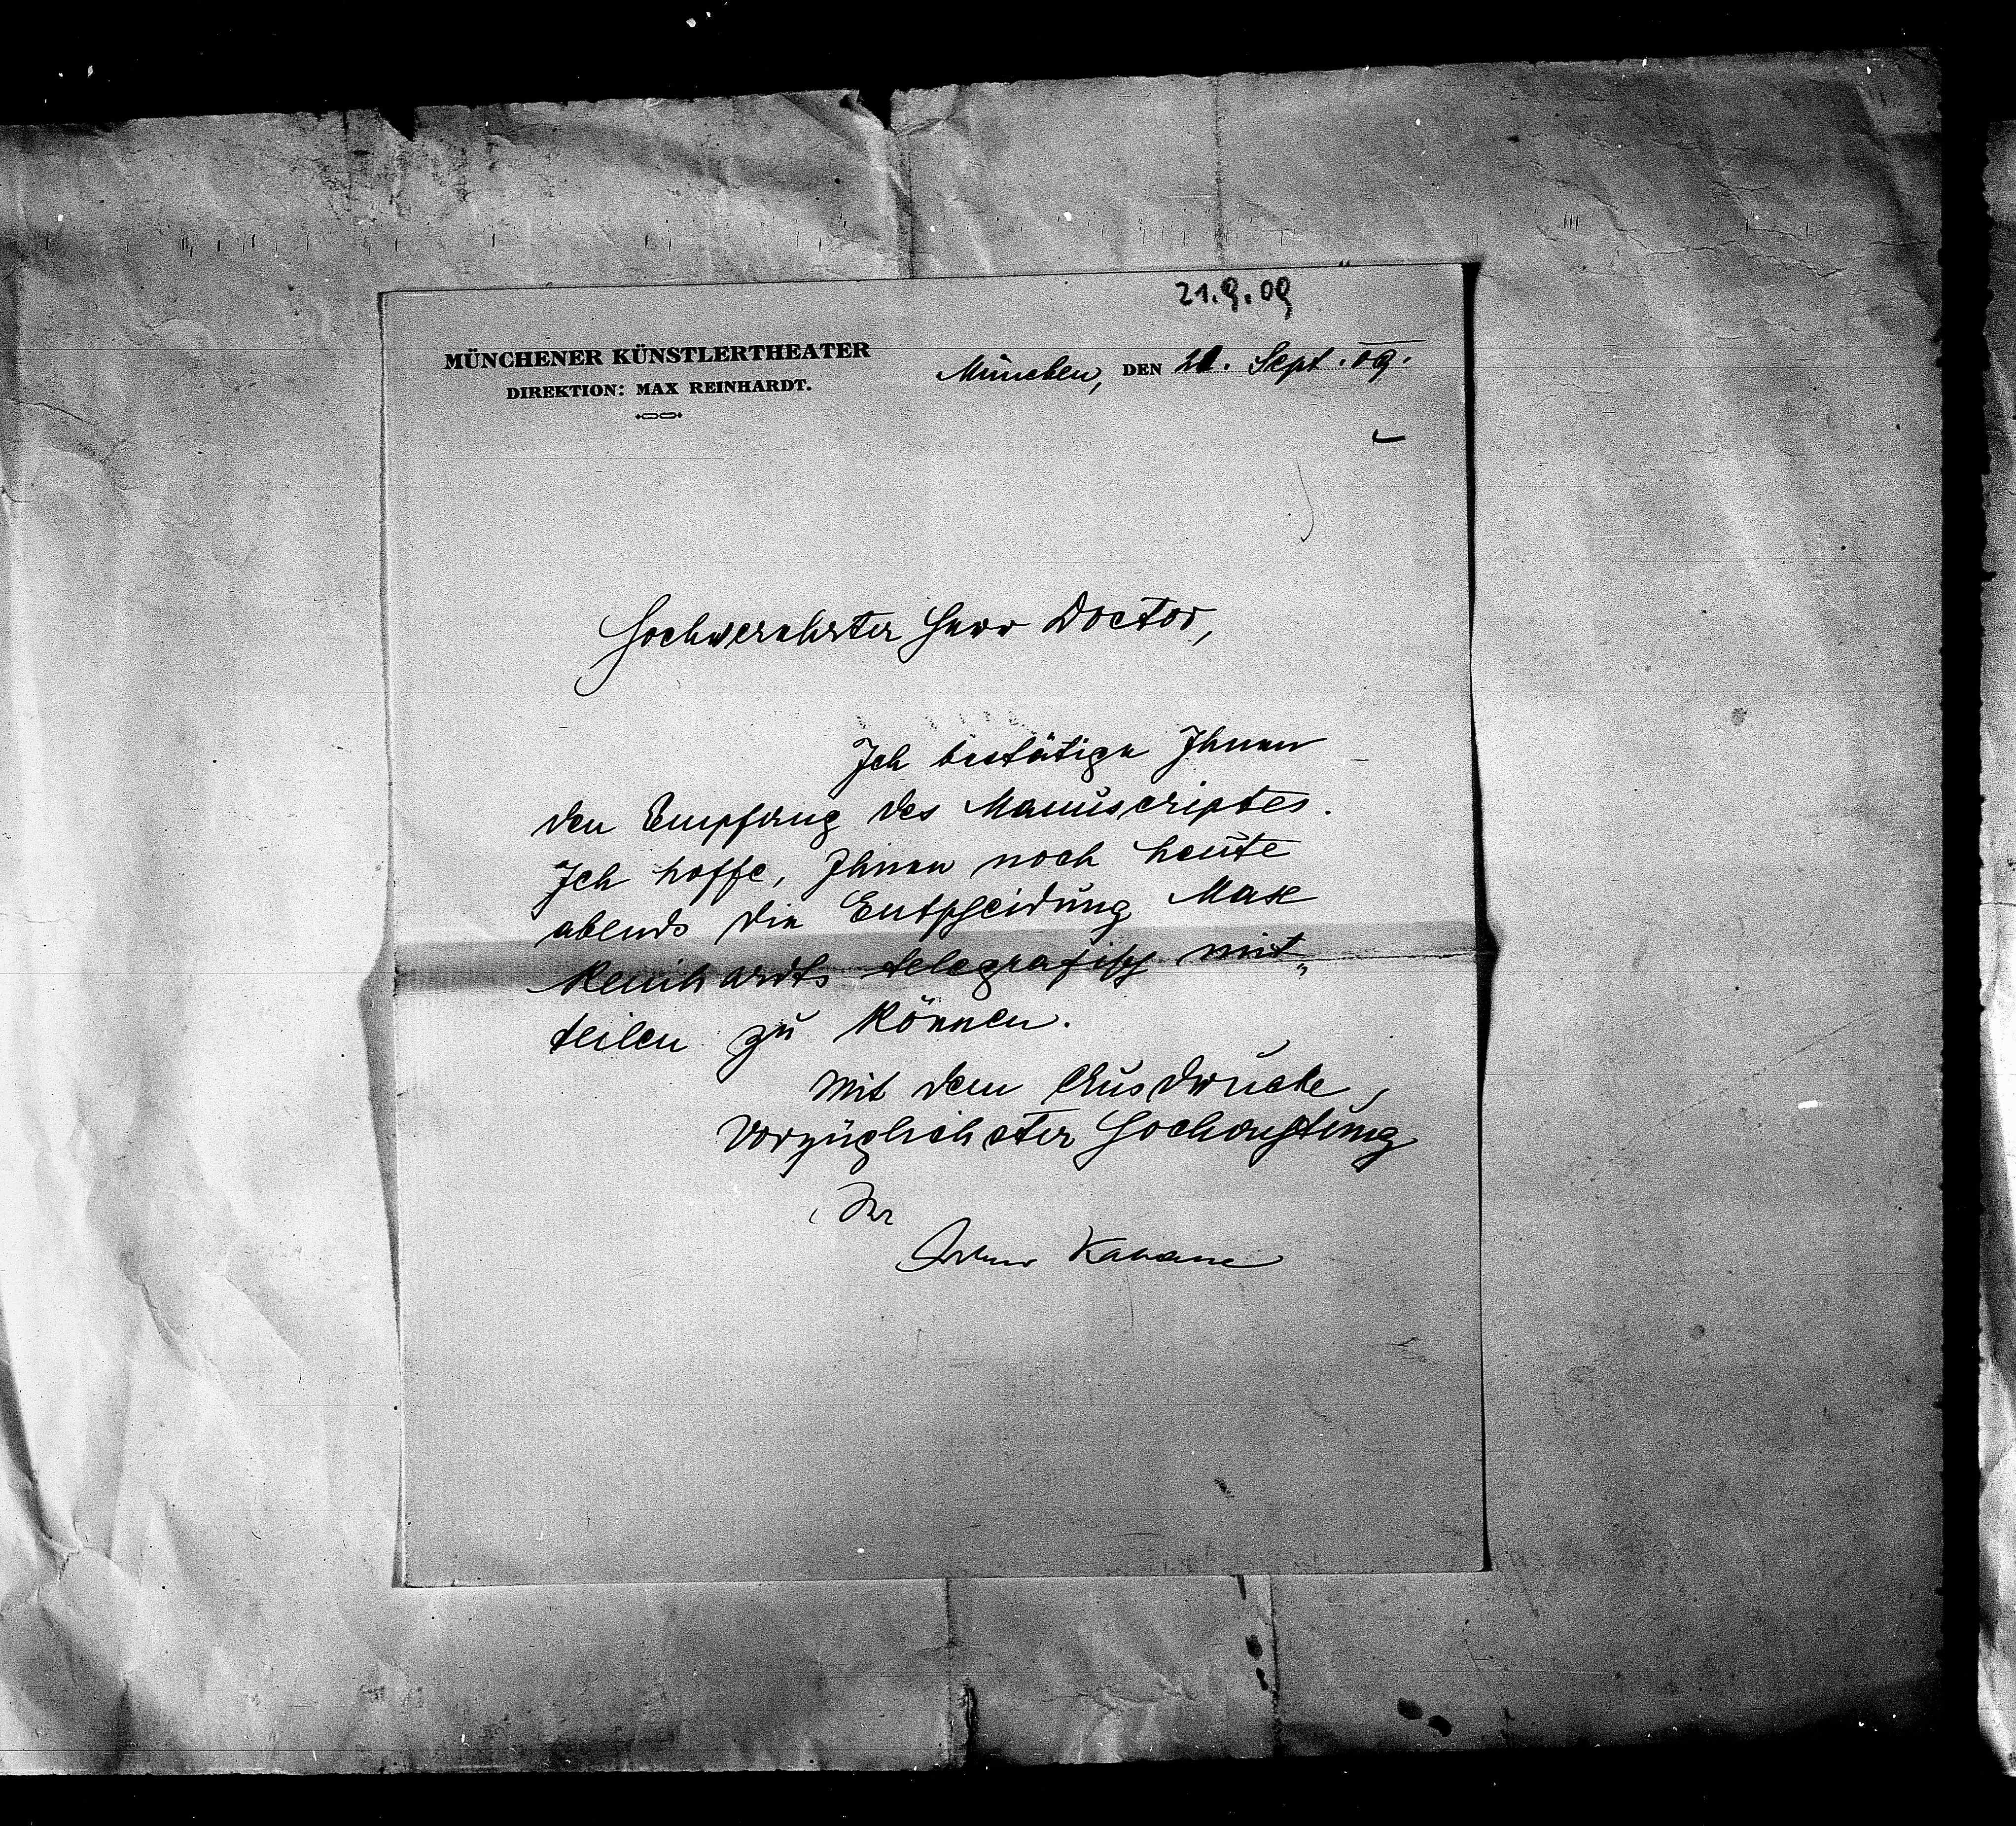 21.9.09
MÜNCHENER KÜNSTLERTHEATER
DIREKTION: MAX REINHARDT.
München, DEN 21. Sept. 09.
Hochverehrter Herr Doctor,
Ich bestätige Ihnen
den Empfang des Manuscriptes.
Ich hoffe, Ihnen noch heute
abends die Entscheidung Max
Reinhardts telegrafisch mit„
teilen zu können.
Mit dem Ausdrucke
vorzüglichster Hochachtung
Ihr
Arthur Kahane